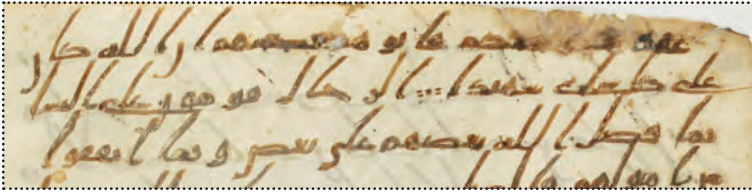 عقدت ايمنكم فاتوهم نصيبهم ان الله كان
على كل شى شهيدا الرجال قومون على النسا
بما فضل الله بعضهم على بعض وبما انفقوا
من امولهم